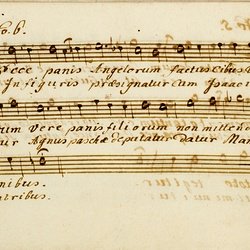 No. 6.
Ecce panis Angelorum factus Cibus
In figuris præsignatur Cum Isaac
num Vere panis filiorum non mittend
ur Agnus paschæ deputatur datur Man
nibus.
tribus.